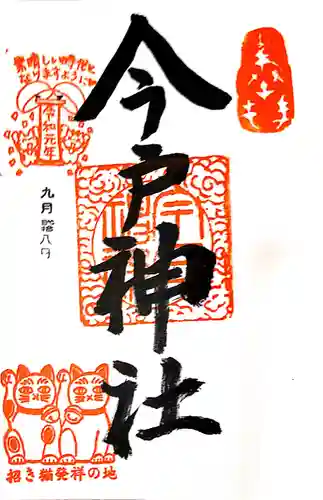 今戸神社
素晴しい時代と
なりますように
令和元年
九月 拾八日
招き猫発祥の地